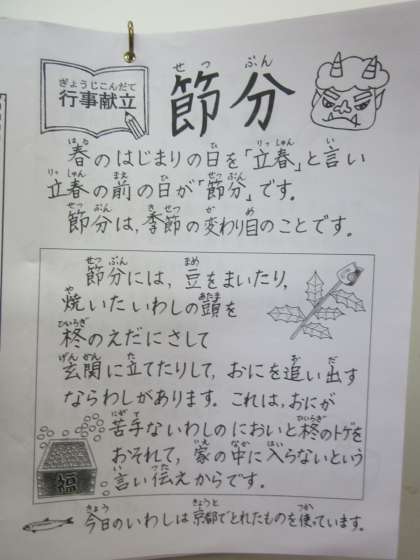 行事献立
節分
春のはじまりの日を「立春」と言い
立春の前の日が「節分」です。
節分は、季節の変わり目のことです。
節分には、豆をまいたり、
焼いたいわしの頭を
柊のえだにさして
玄関に立てたりして、おにを追い出す
ならわしがあります。これは、おにが
苦手ないわしのにおいと柊のトゲを
おそれて、家の中に入らないという
言い伝えからです。
福
今日のいわしは京都でとれたものを使っています。